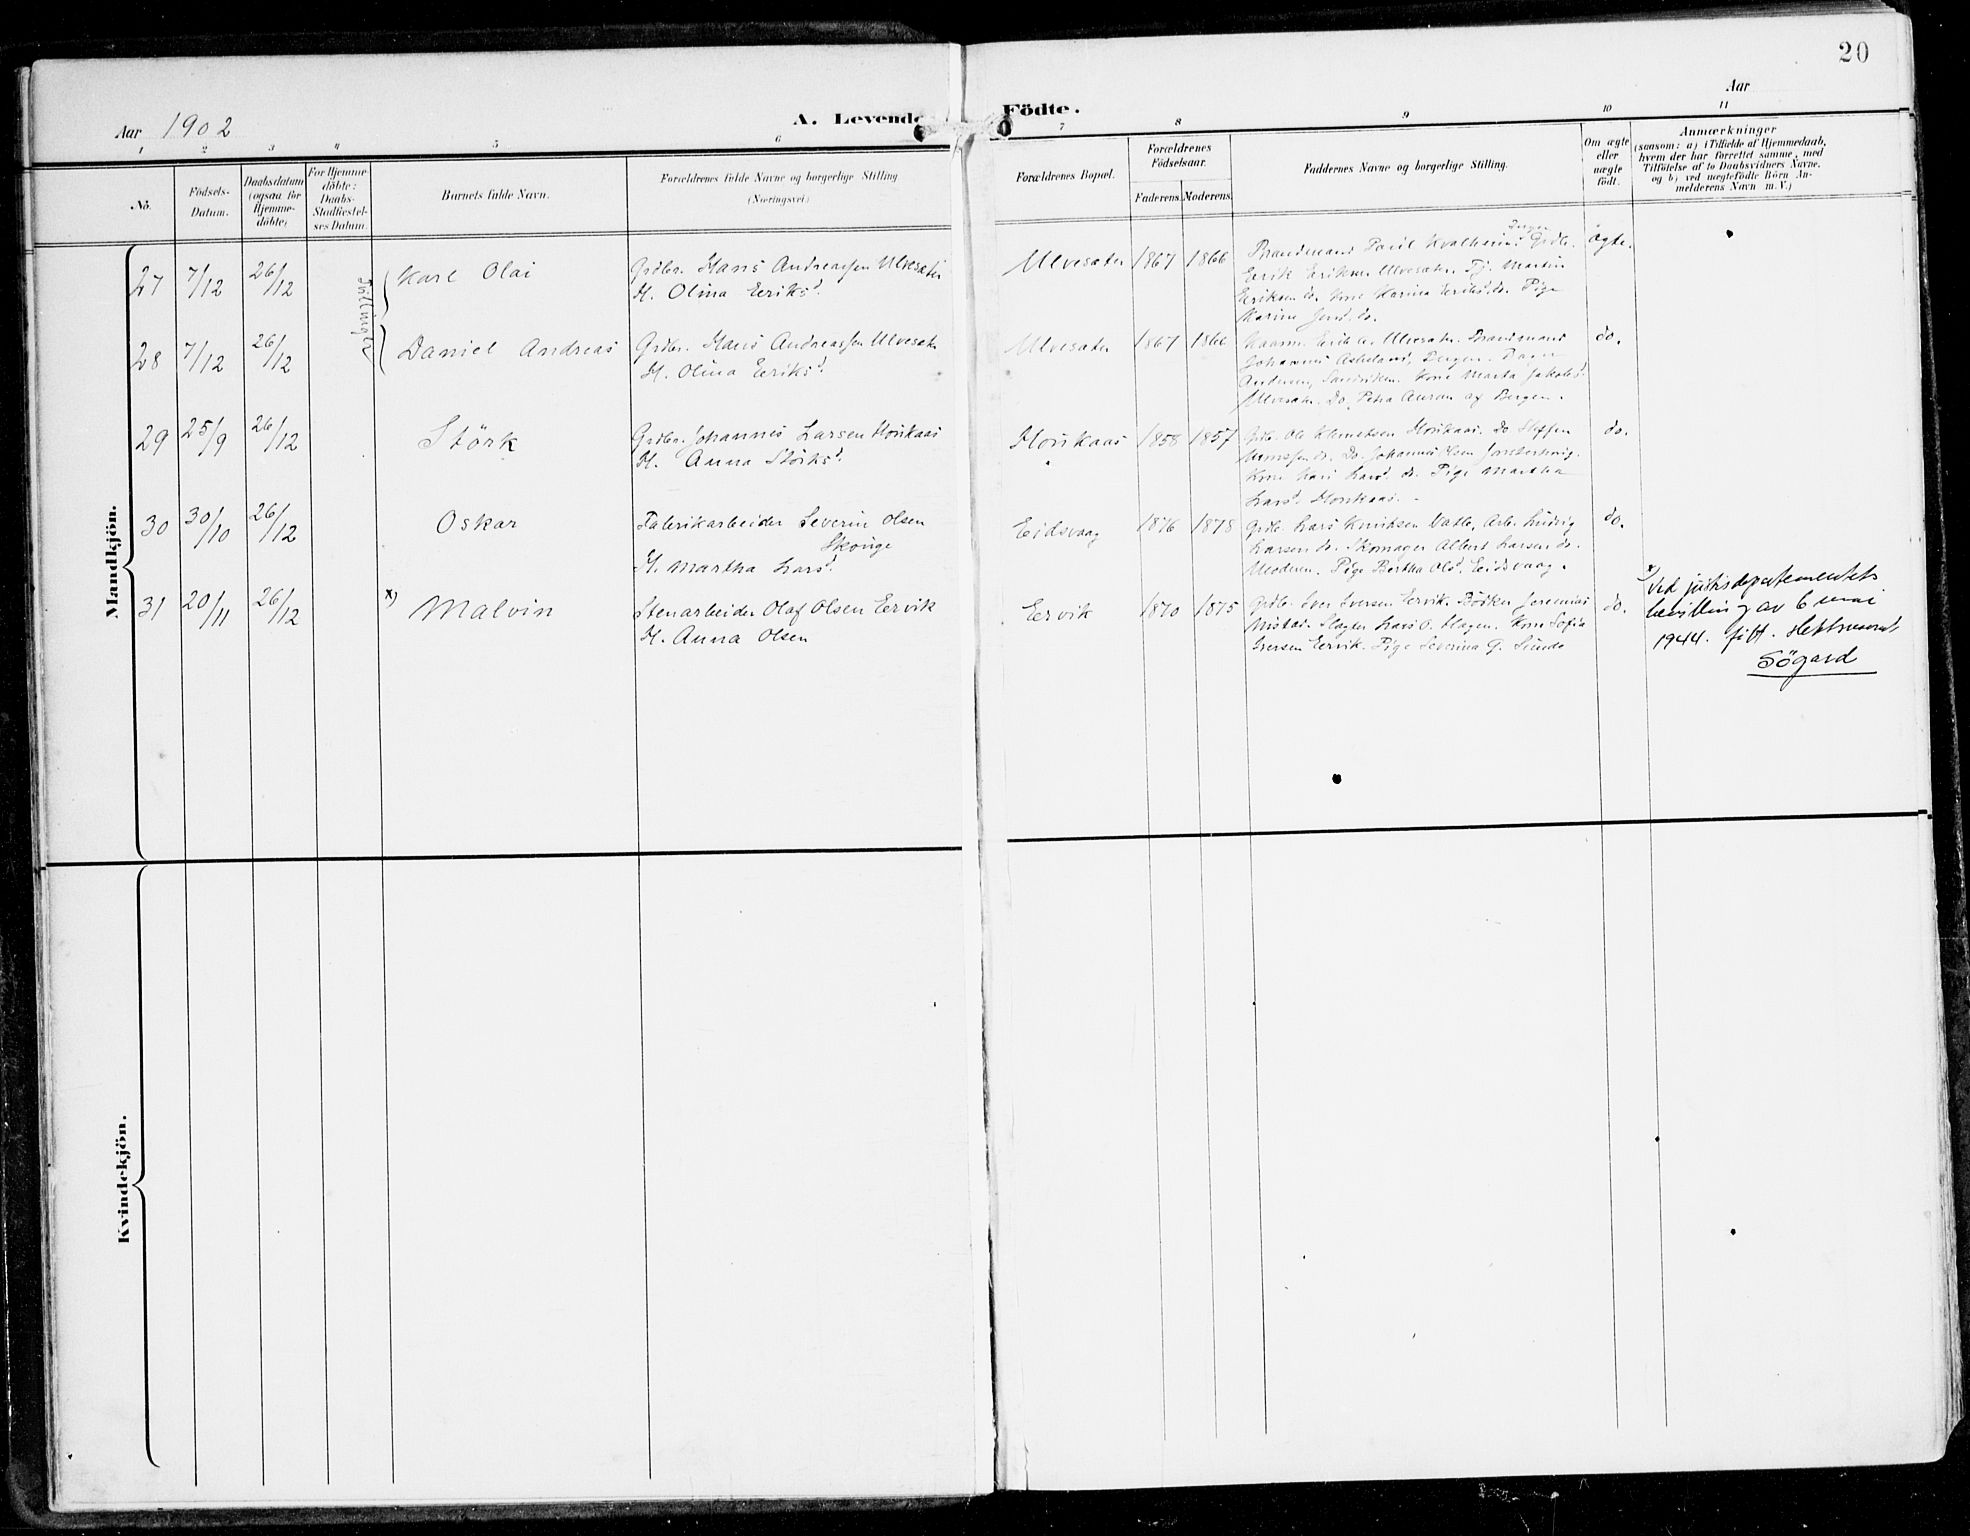 20
Aar 1902
A. Levende Födte.
Aar
1 2 3 4 5 6 7 8 9 10 11
No.
Födsels-
Datum.
Daabsdatum
(ogsaa for
Hjemme-
döbte)
For Hjemme-
döbte:
Daabs-
Stadfæstel-
ses Datum.
Barnets fulde Navn.
Forældrenes fulde Navne og borgerlige Stilling
(Næringsvei)
Forældrenes Bopæl.
Forældrenes
Födselsaar.
Faderens. Moderens.
Faddernes Navne og borgerlige Stilling.
Om ægte
eller
uægte
födt.
Anmærkninger
(saasom: a) i Tilfælde af Hjemmedaab,
hvem der har forrettet samme, med
Tilföielse af to Daabsvidners Navne.
og b) ved uægtefödte Börn An-
melderens Navn m. V.)
Mandkjön.
Tvillinger
27 7/12 26/12 Karl Olai
Grdbr. Hans Andreassen Ulvesæter
H. Olina Eeriksd.
Ulvesæter 1867 1866
Brandmand Paul Kvalheim, Bergen. Grdbr.
Eerik Eeriksen Ulvesæter. Tj. Martin
Eeriksen do. Kone Karina Eeriksd. do. Pige
Marine Jensd. do.
ægte.
28 7/12 26/12 Daniel Andreas
Grdbr. Hans Andreassen Ulvesæter
H. Olina Eeriksd.
Ulvesæter 1867 1866
Ulvesæter. Brandmand
Johannes Askeland, Bergen.
Andersen, Sandviken. Kone Marta Jakobsd.
Ulvesæter. Do. Petra Auran af Bergen.
do.
29 25/9 26/12 Störk
Grdbr. Johannes Larsen Houkaas
H. Anna Störksd.
Houkaas 1858 1857
Grdbr. Ole Klemetsen Houkaas. Do. Steffen
Monssen do. Do. Johannes Olsen
Kone Kari Larsd. do. Pige Martha
Larsd. Houkaas.
do.
30 30/10 26/12 Oskar
Fabrikarbeider Severin Olsen
Skouge
H. Martha Larsd.
Eidsvaag 1876 1878
Grdbr. Lars Knutsen Vatle, Arb. Ludvig
Larsen do. Skomager Albert Larsen do.
Moderen. Pige Bertha Olsd. Eidsvaag.
do.
31 20/11 26/12 x) Malvin
Stenarbeider Olaf Olsen Eervik
H. Anna Olsen
Eervik 1870 1875
Grdbr. Iver Iversen Eervik. Bödker Jeremias
Mistad. Slagter Lars O. Hagen. Kone Sofia
Iversen Eervik. Pige Severina G. Sunde
do.
x) Ved justisdepartementets
bevilling av 6 mai
1944. fått slektsnavnet
Sögard
Kvindekjön.